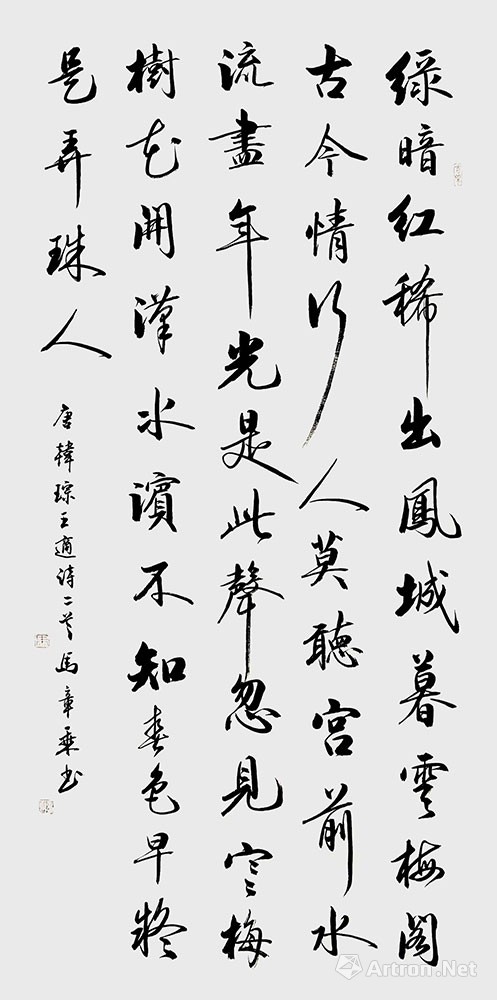 綠暗紅稀出鳳城暮雲梅閣
古今情行人莫聽宮前水
流盡年光是此聲忽見寒梅
樹花開漢水濱不知春色早疑
是弄珠人
唐韓琮王適詩二首馬章乘書
Artron.Net